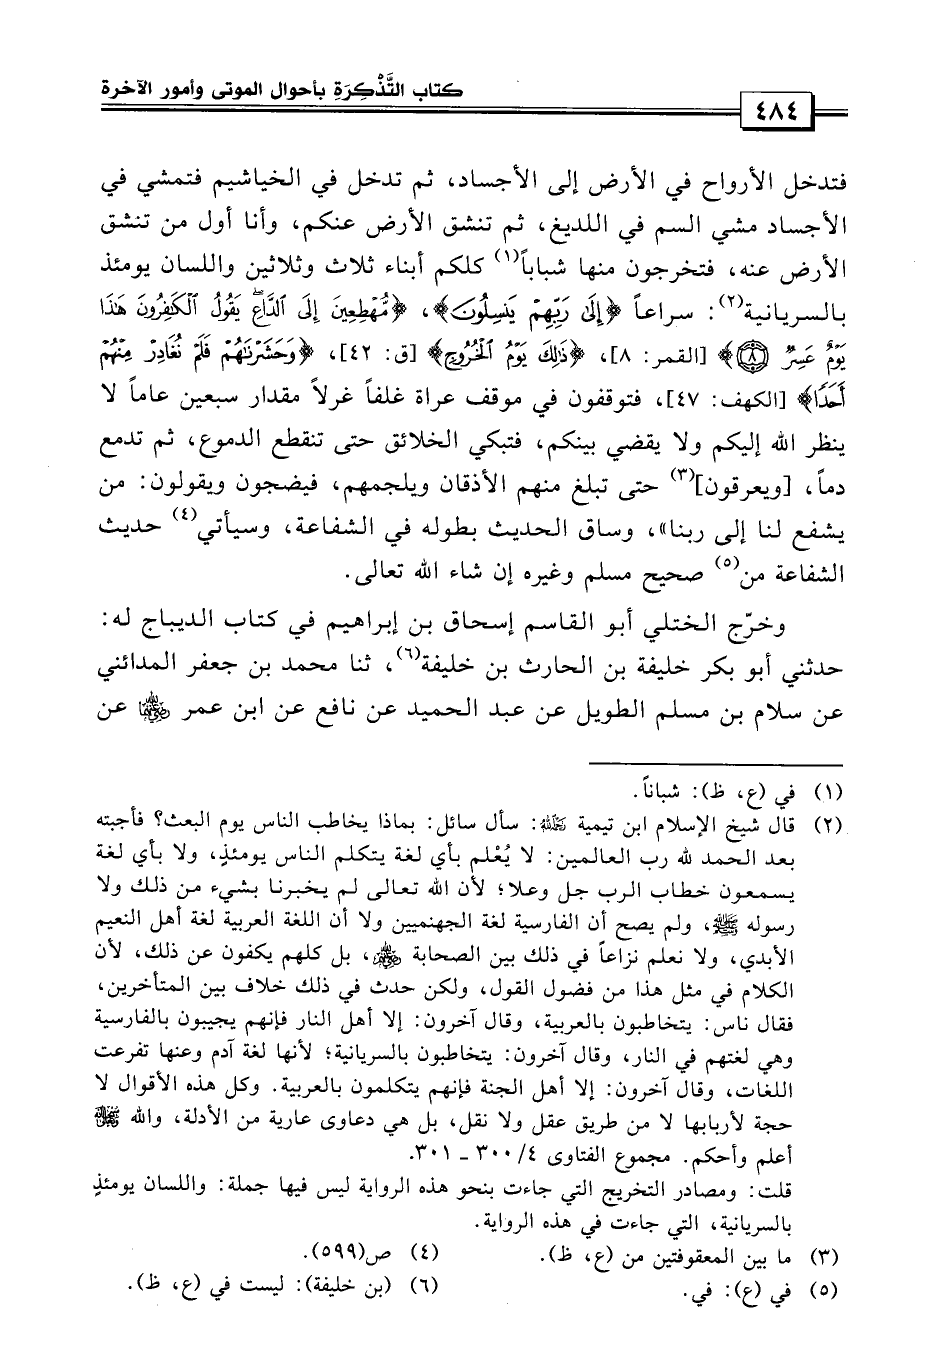 كتاب التَّذْكِرَةِ بأحوال الموتى وأمور الآخرة
٤٨٤
فتدخل الأرواح في الأرض إلى الأجساد، ثم تدخل في الخياشيم فتمشي في
الأجساد مشي السم في اللديغ، ثم تنشق الأرض عنكم، وأنا أول من تنشق
الأرض عنه، فتخرجون منها شباباً(١) كلكم أبناء ثلاث وثلاثين واللسان يومئذ
بالسريانية(٢): سراعاً ﴿إِلَىٰ رَبِّهِمْ يَنسِلُونَ﴾، ﴿مُّهْطِعِينَ إِلَى ٱلدَّاعِ يَقُولُ ٱلْكَٰفِرُونَ هَٰذَا
يَوْمٌ عَسِرٌ ٨﴾ [القمر: ٨]، ﴿ذَٰلِكَ يَوْمُ ٱلْخُرُوجِ﴾ [ق: ٤٢]، ﴿وَحَشَرْنَٰهُمْ فَلَمْ نُغَادِرْ مِنْهُمْ
أَحَدًا﴾ [الكهف: ٤٧]، فتوقفون في موقف عراة غلفاً غرلاً مقدار سبعين عاماً لا
ينظر الله إليكم ولا يقضي بينكم، فتبكي الخلائق حتى تنقطع الدموع، ثم تدمع
دماً، [ويعرقون](٣) حتى تبلغ منهم الأذقان ويلجمهم، فيضجون ويقولون: من
يشفع لنا إلى ربنا»، وساق الحديث بطوله في الشفاعة، وسيأتي(٤) حديث
الشفاعة من(٥) صحيح مسلم وغيره إن شاء الله تعالى.
وخرّج الختلي أبو القاسم إسحاق بن إبراهيم في كتاب الديباج له:
حدثني أبو بكر خليفة بن الحارث بن خليفة(٦)، ثنا محمد بن جعفر المدائني
عن سلام بن مسلم الطويل عن عبد الحميد عن نافع عن ابن عمر رضي الله عنهما عن
(١) في (ع، ظ): شباناً.
(٢) قال شيخ الإسلام ابن تيمية رحمه الله: سأل سائل: بماذا يخاطب الناس يوم البعث؟ فأجبته
بعد الحمد لله رب العالمين: لا يُعْلم بأي لغة يتكلم الناس يومئذٍ، ولا بأي لغة
يسمعون خطاب الرب جل وعلا؛ لأن الله تعالى لم يخبرنا بشيء من ذلك ولا
رسوله ﷺ، ولم يصح أن الفارسية لغة الجهنميين ولا أن اللغة العربية لغة أهل النعيم
الأبدي، ولا نعلم نزاعاً في ذلك بين الصحابة رضي الله عنهم، بل كلهم يكفون عن ذلك، لأن
الكلام في مثل هذا من فضول القول، ولكن حدث في ذلك خلاف بين المتأخرين،
فقال ناس: يتخاطبون بالعربية، وقال آخرون: إلا أهل النار فإنهم يجيبون بالفارسية
وهي لغتهم في النار، وقال آخرون: يتخاطبون بالسريانية؛ لأنها لغة آدم وعنها تفرعت
اللغات، وقال آخرون: إلا أهل الجنة فإنهم يتكلمون بالعربية. وكل هذه الأقوال لا
حجة لأربابها لا من طريق عقل ولا نقل، بل هي دعاوى عارية من الأدلة، والله
أعلم وأحكم. مجموع الفتاوى ٤/ ٣٠٠ ـ ٣٠١.
قلت: ومصادر التخريج التي جاءت بنحو هذه الرواية ليس فيها جملة: واللسان يومئذٍ
بالسريانية، التي جاءت في هذه الرواية.
(٣) ما بين المعقوفتين من (ع، ظ). (٤) ص(٥٩٩).
(٥) في (ع): في. (٦) (بن خليفة): ليست في (ع، ظ).